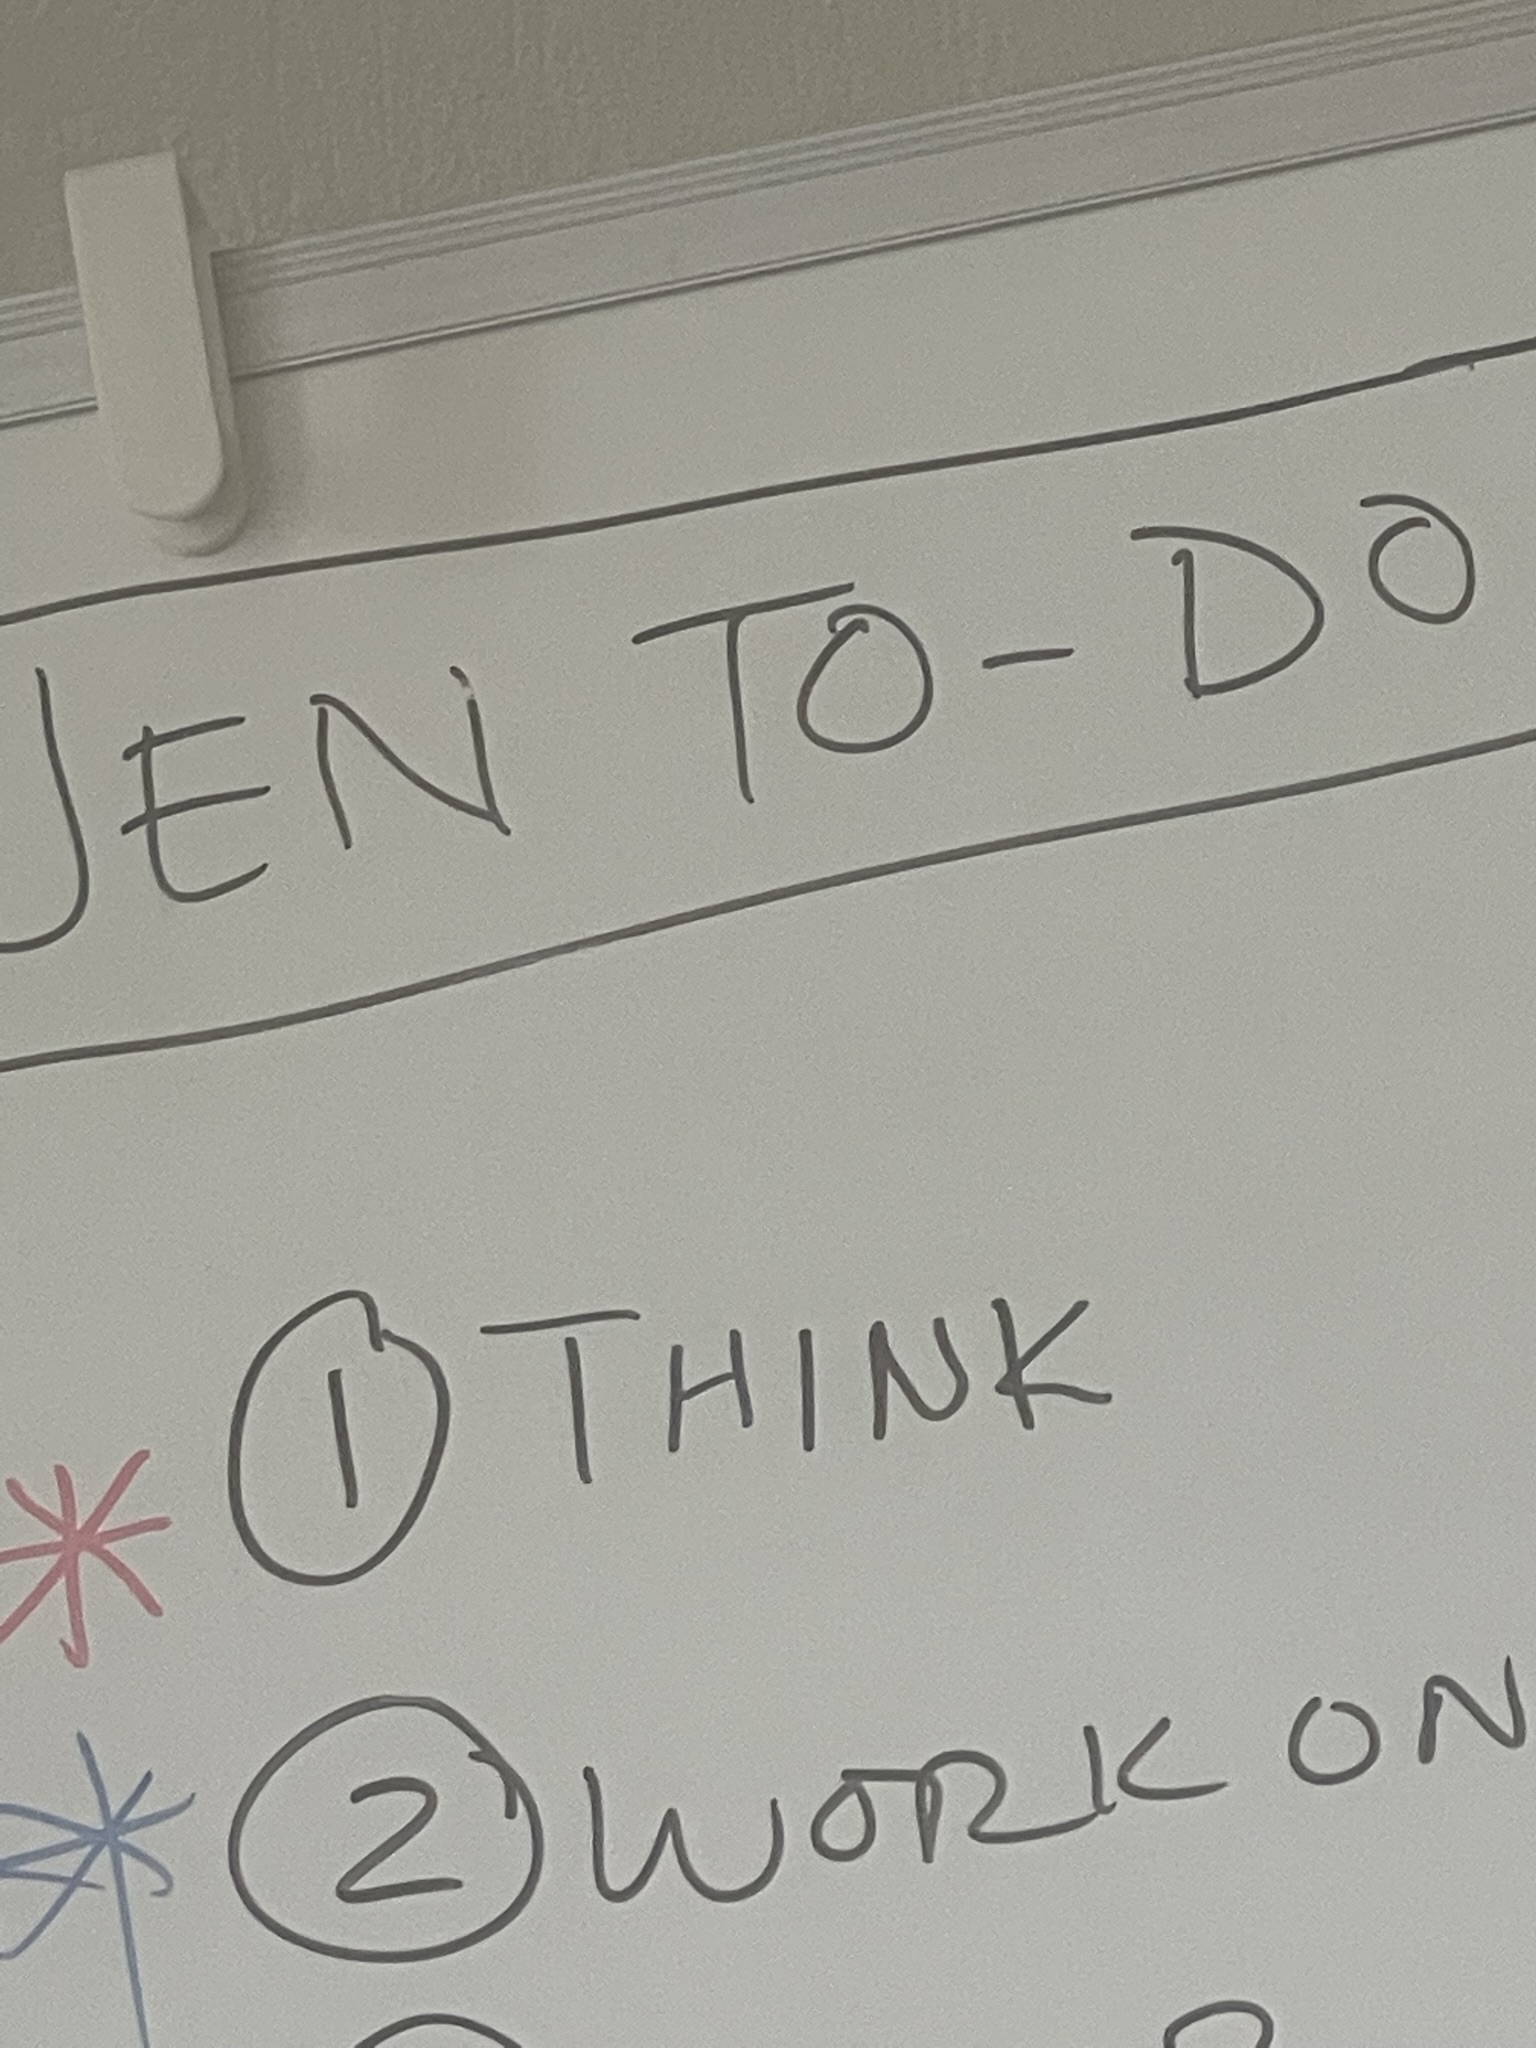 JEN TO-DO
① THINK
② WORK ON